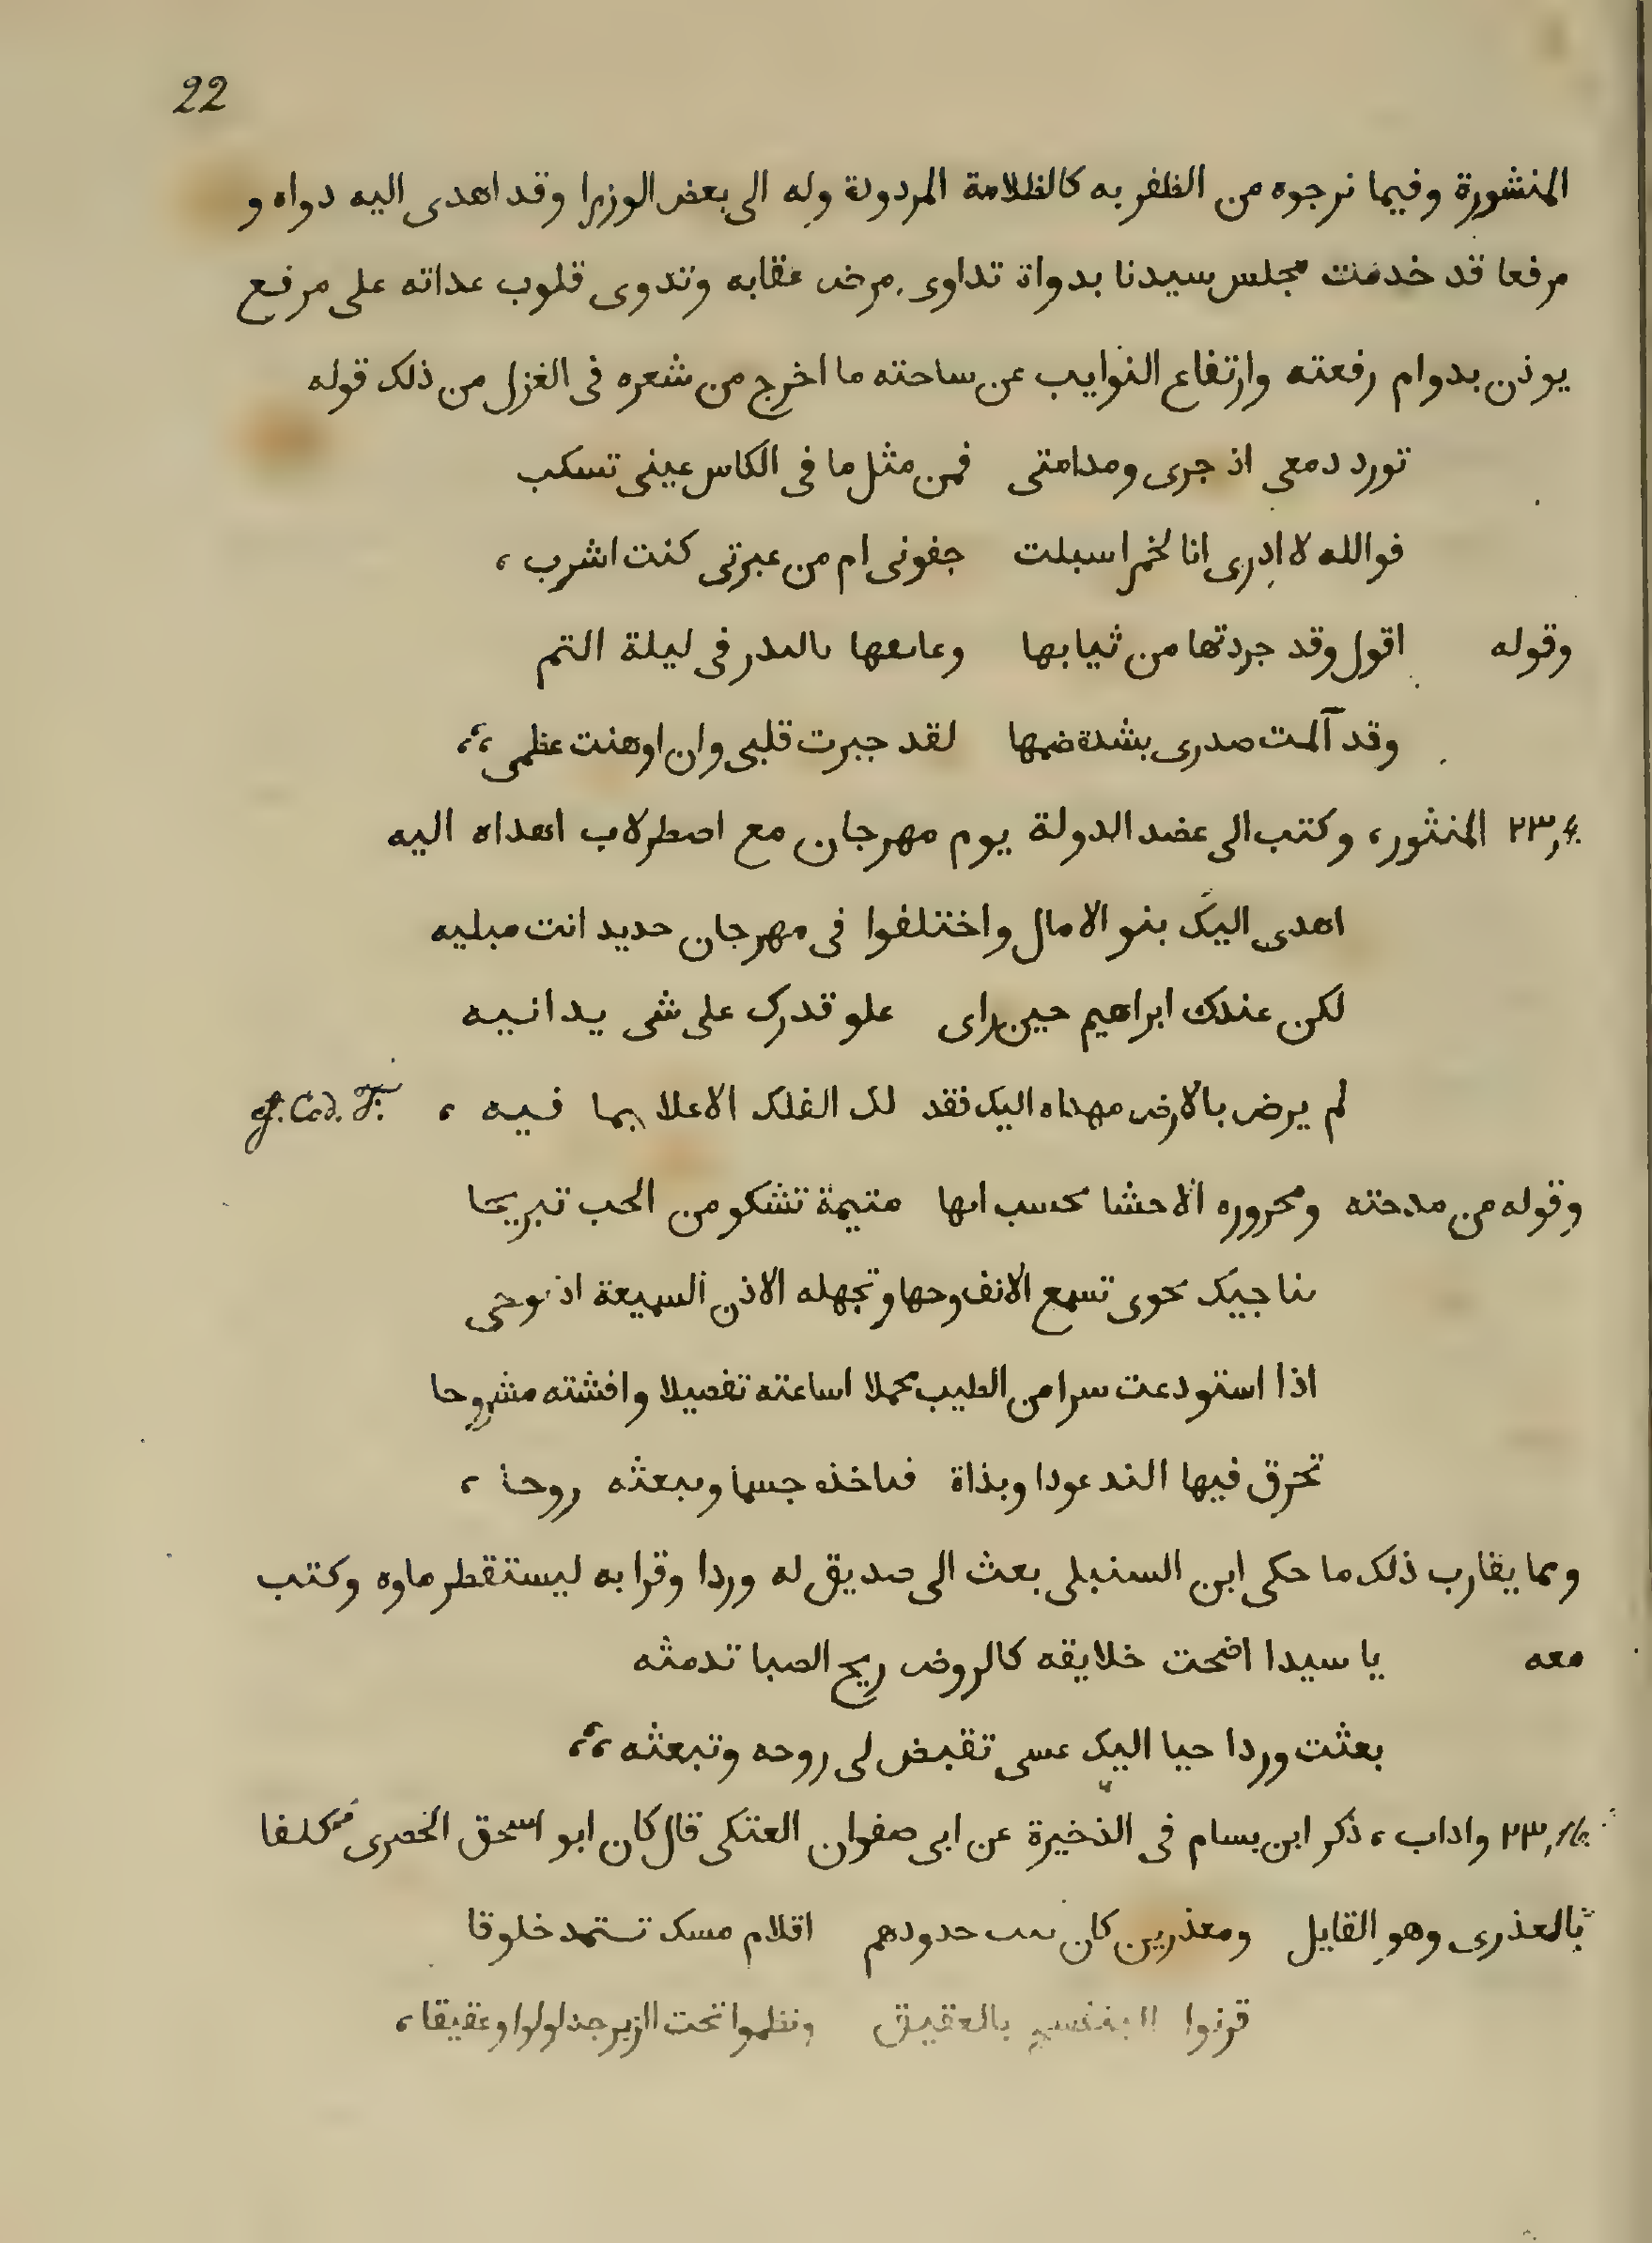 22
المنشورة وفيما نرجوه من الظفر به كالظلامة المردودة وله الى بعض الوزرا وقد اهدى اليه دواه و
مرفعا قد خدمت مجلس سيدنا بدواة تداوى مرض عقابه وتدوى قلوب عداته على مرفع
يوذن بدوام رفعته وارتفاع النوايب عن ساحته ما اخرج من شعره فى الغزل من ذلك قوله
تورد دمعى اذ جرى ومدامتى فمن مثل ما فى الكاس عينى تسكب
فوالله لا ادرى انا لخمر اسبلت جفونى ام من عبرتى كنت اشرب ،
وقوله اقول وقد جردتها من ثيابها وعانقتها بالبدر فى ليلة التم
وقد آلمت صدرى بشدة ضمها لقد جبرت قلبى وان اوهنت عظمى ،،
٢٣,4. المنثور، وكتب الى عضد الدولة يوم مهرجان مع اصطرلاب اهداه اليه
اهدى اليك بنو الامال واختلفوا فى مهرجان حديد انت مبليه
لكن عندك ابراهيم حين راى علو قدرك على شى يدانيه
لم يرض بالارض مهداه اليك فقد لك الفلك الاعلا بما فيه ، cf. Cod. F.
وقوله من مدحته ومحروره الاحشا تحسب انها متيمة تشكو من الحب تبريحا
نناجيك نحوى تسمع الانف وحها وتجهله الاذن السميعة اذ نوحى
اذا استودعت سرا من الطيب محملا اساعته تفصيلا وافشته مشروحا
تحرق فيها الند عودا وبذاة فتاخذه جسما وتبعثه روحا ،
ومما يقارب ذلك ما حكى ابن السنبلى بعث الى صديق له وردا وقرابه ليستقطر ماوه وكتب
معه يا سيدا اضحت خلايقه كالروض ريح الصبا تدمثه
بعثت وردا حيا اليك عسى تقبض لى روحه وتبعثه ،،
٢٣,16. واداب ، ذكر ابن بسام فى الذخيرة عن ابى صفوان العتكى قال كان ابو اسحق الحصرى كلفا
بالعذرى وهو القايل ومعذرين كان نبت خدودهم اقلام مسك تستمد خلوقا
قرنوا البنفسج بالعقيق ونظموا تحت الزبرجد لولوا وعقيقا ،